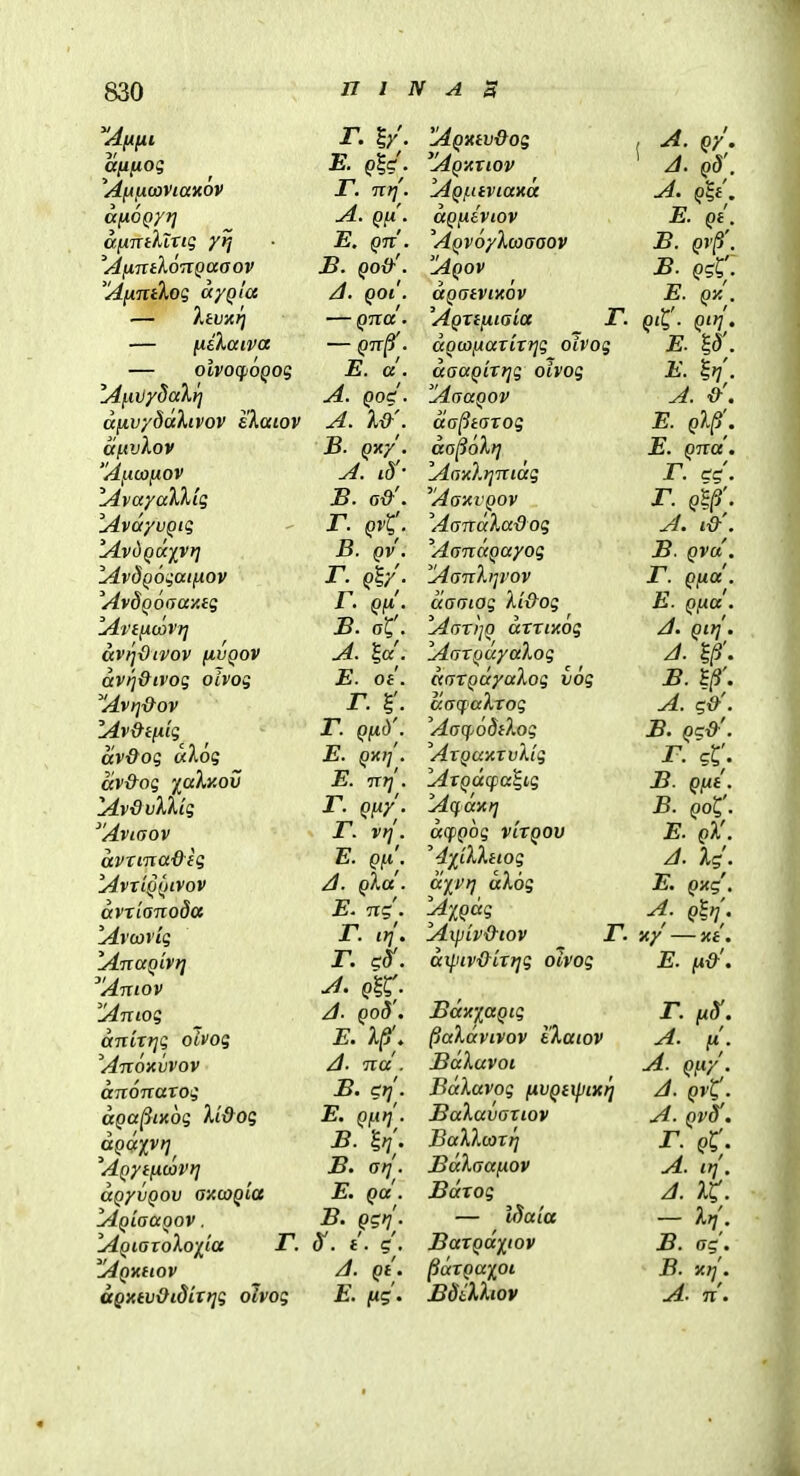 830 ΠΙΝΑΞ
Ἄμμι Γ. ξγ΄.
ἄμμος Ε. ρξς΄.
Ἀμμωνιακόν Γ. πη΄.
ἀμόργη Α. ρμ΄.
ἀμπελῖτις γῆ Ε. ρπ΄.
Ἀμπελόπρασον Β. ροθ΄.
Ἄμπελος ἀγρία Δ. ροι΄.
— λευκή — ρπα΄.
— μέλαινα — ρπβ΄.
— οἰνοφόρος Ε. α΄.
Ἀμυγδαλῆ Α. ρος΄.
ἀμυγδάλινον ἔλαιον Α. λθ΄.
ἄμυλον Β. ρκγ΄.
Ἄμωμον Α. ιδ΄.
Ἀναγαλλίς Β. σθ΄.
Ἀνάγυρις Γ. ρνζ΄.
Ἀνδράχνη Β. ρν΄.
Ἀνδρόςαιμον Γ. ρξγ΄.
Ἀνδρόσακες Γ. ρμ΄.
Ἀνεμώνη Β. σζ΄.
ἀνήθινον μύρον Α. ξα΄.
ἀνήθινος οἶνος Ε. οε΄.
Ἄνηθον Γ. ξ΄.
Ἀνθεμίς Γ. ρμδ΄.
ἄνθος ἁλός Ε. ρκη΄.
ἄνθος χαλκοῦ Ε. πη΄.
Ἀνθυλλίς Γ. ρμγ΄.
Ἄνισον Γ. νη΄.
ἀντιπαθές Ε. ρμ΄.
Ἀντίῤῥινον Δ. ρλα΄.
ἀντίσποδα Ε. πς΄.
Ἀνωνίς Γ. ιη΄.
Ἀπαρίνη Γ. ςδ΄.
Ἄπιον Α. ρξζ΄.
Ἄπιος Δ. ροδ΄.
ἀπίτης οἶνος Ε. λβ΄.
Ἀπόκυνον Δ. πα΄.
ἀπόπατος Β. ςη΄.
ἀραβικὸς λίθος Ε. ρμη΄.
ἀράχνη Β. ξη΄.
Ἀργεμώνη Β. ση΄.
ἀργύρου σκωρία Ε. ρα΄.
Ἀρίσαρον. Β. ρςη΄.
Ἀριστολοχία Γ. δ΄. ε΄. ς΄.
Ἄρκειον Δ. ρε΄.
ἀρκευθιδίτης οἶνος Ε. μς΄.
Ἄρκευθος Α. ργ΄.
Ἄρκτιον Δ. ρδ΄.
Ἀρμενιακά Α. ρξε΄.
ἀρμένιον Ε. ρε΄.
Ἀρνόγλωσσον Β. ρνβ΄.
Ἄρον Β. ρςζ΄.
ἀρσενικόν Ε. ρκ΄.
Ἀρτεμισία Γ. ριζ΄. ριη΄.
ἀρωματίτης οἶνος Ε. ξδ΄.
ἀσαρίτης οἶνος Ε. ξη΄.
Ἄσαρον Α. θ΄.
ἄσβεστος Ε. ρλβ΄.
ἀσβόλη Ε. ρπα΄.
Ἀσκληπιάς Γ. ςς΄.
Ἄσκυρον Γ. ρξβ΄.
Ἀσπάλαθος Α. ιθ΄.
Ἀσπάραγος Β. ρνα΄.
Ἄσπληνον Γ. ρμα΄.
ἄσσιος λίθος Ε. ρμα΄.
Ἀστὴρ ἀττικός Δ. ριη΄.
Ἀστράγαλος Δ. ξβ΄.
ἀστράγαλος ὑός Β. ξβ΄.
ἄσφαλτος Α. ςθ΄.
Ἀσφόδελος Β. ρςθ΄.
Ἀτρακτυλίς Γ. ςζ΄.
Ἀτράφαξις Β. ρμε΄.
Ἀφάκη Β. ροζ΄.
ἀφρὸς νίτρου Ε. ρλ΄.
Ἀχίλλειος Δ. λς΄.
ἄχνη ἁλός Ε. ρκς΄.
Ἀχράς Α. ρξη΄.
Ἀψίνθιον Γ. κγ΄ — κε΄.
ἀψινθίτης οἶνος Ε. μθ΄.
Βάκχαρις Γ. μδ΄.
βαλάνινον ἔλαιον Α. μ΄.
Βάλανοι Α. ρμγ΄.
Βάλανος μυρεψική Δ. ρνζ΄.
Βαλαύστιον Α. ρνδ΄.
Βαλλωτή Γ. ρζ΄.
Βάλσαμον Α. ιη΄.
Βάτος Δ. λζ΄.
— ἰδαία — λη΄.
Βατράχιον Β. σς΄.
βάτραχοι Β. κη΄.
Βδέλλιον Α. π΄.